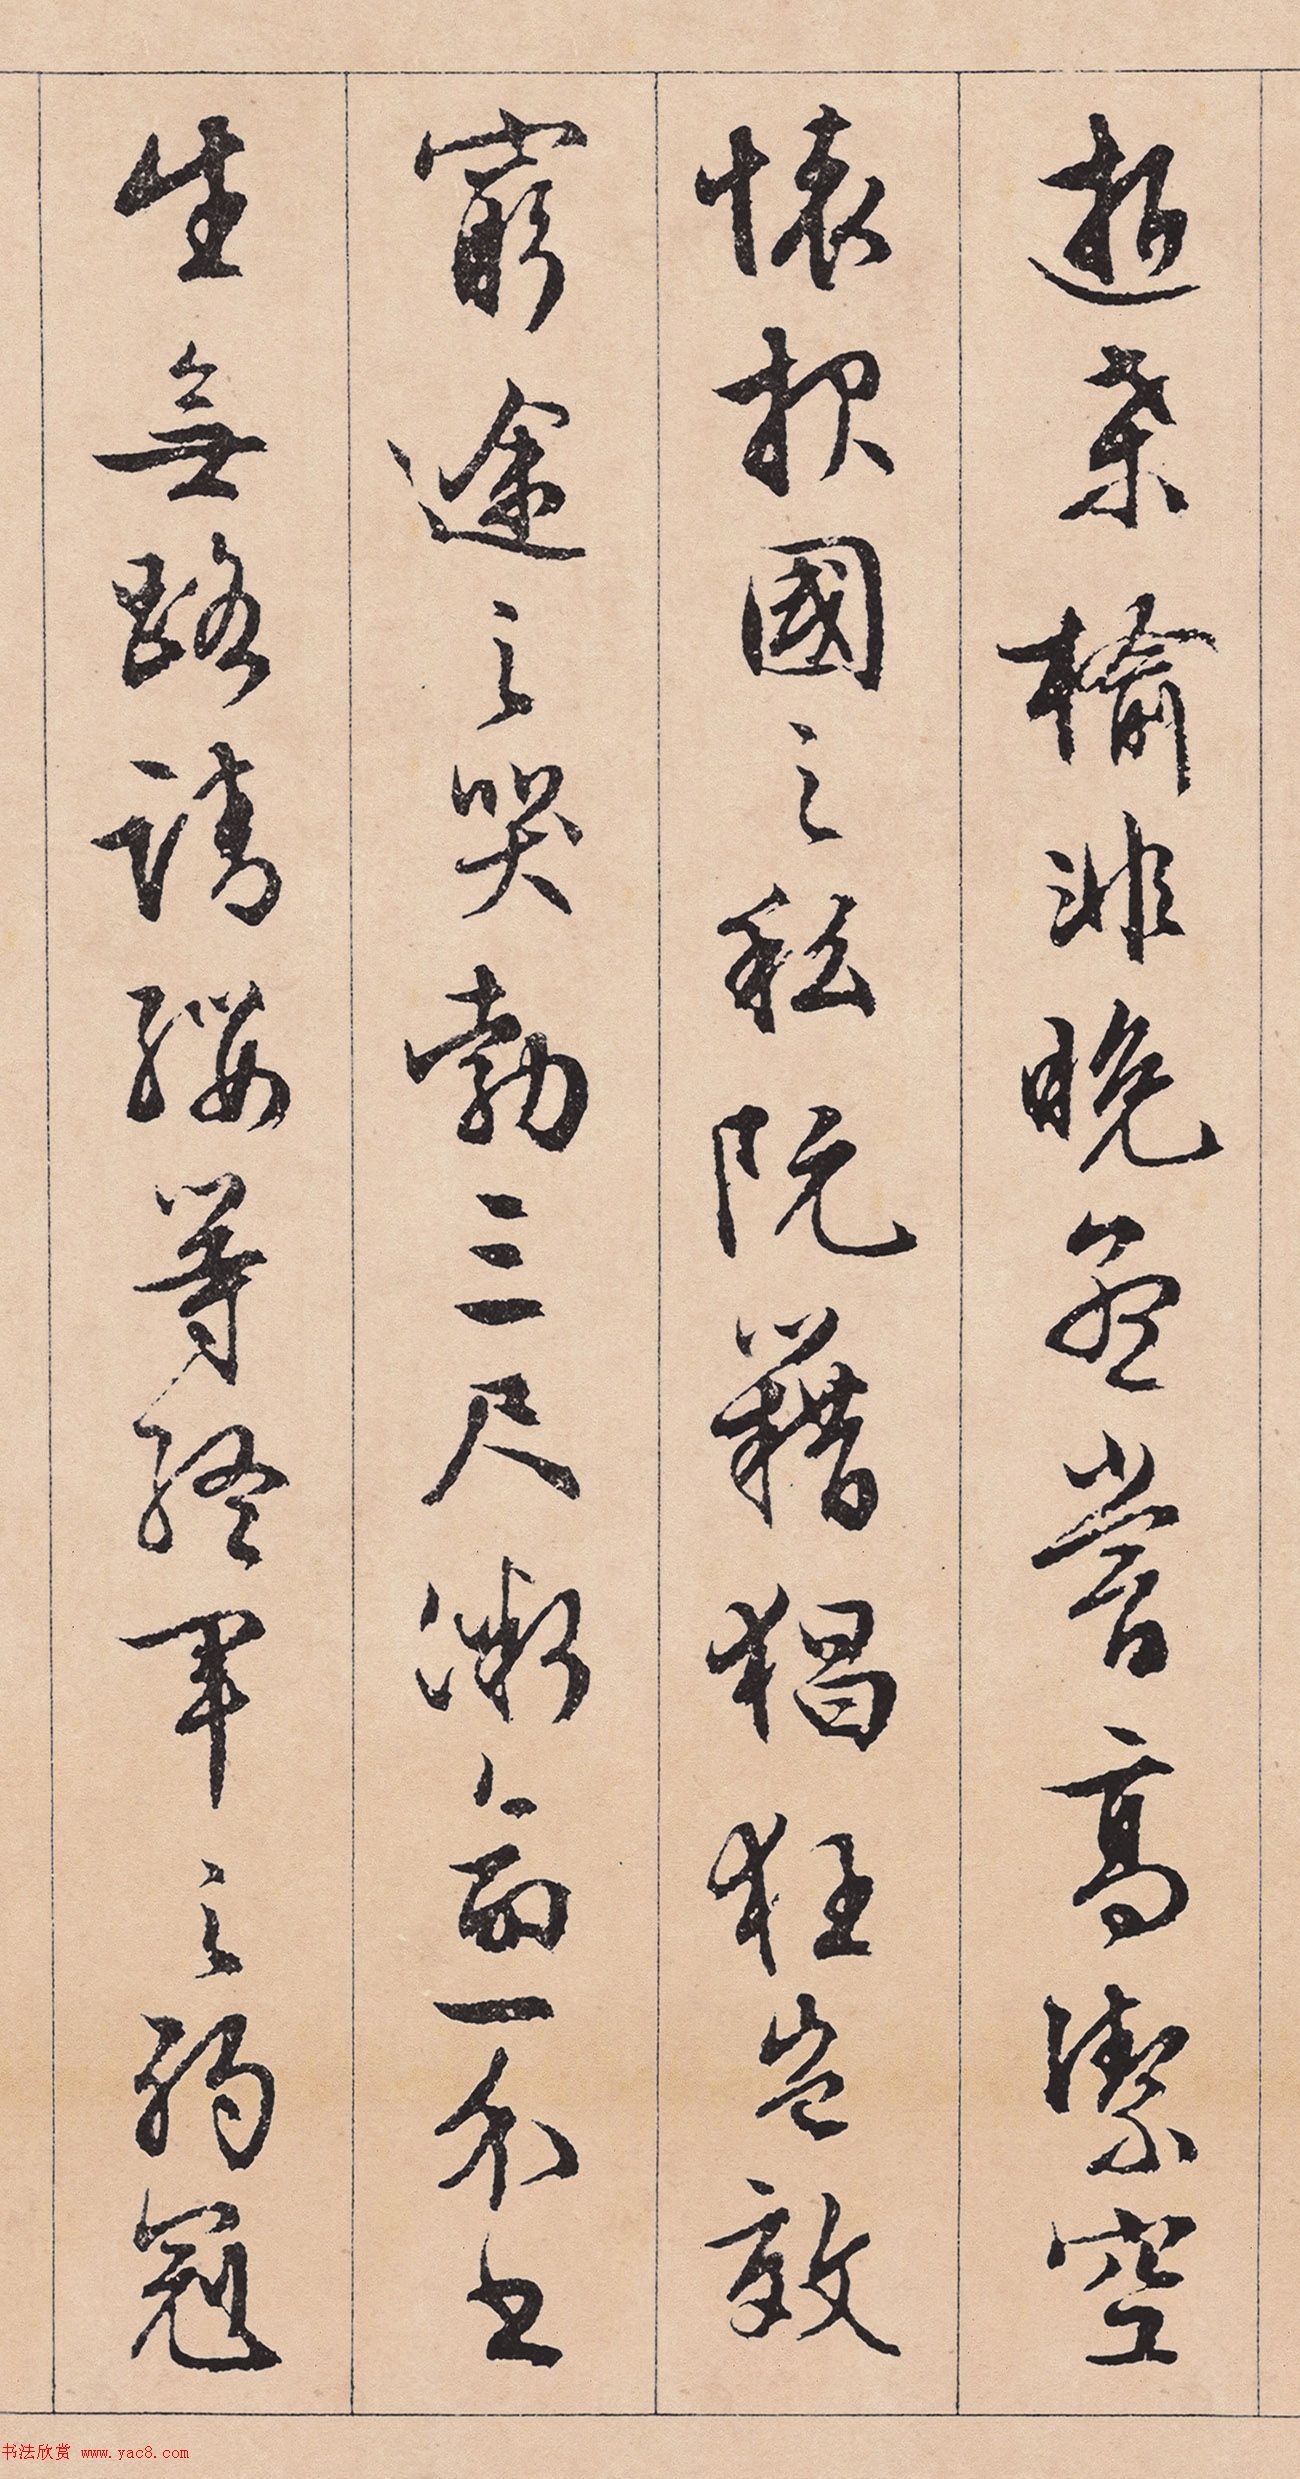 逝桑榆非晚孟嘗高潔空
懷報國之私阮籍猖狂豈效
窮途之哭勃三尺微命一介書
生無路請纓等終軍之弱冠
书法欣赏 www.yac8.com